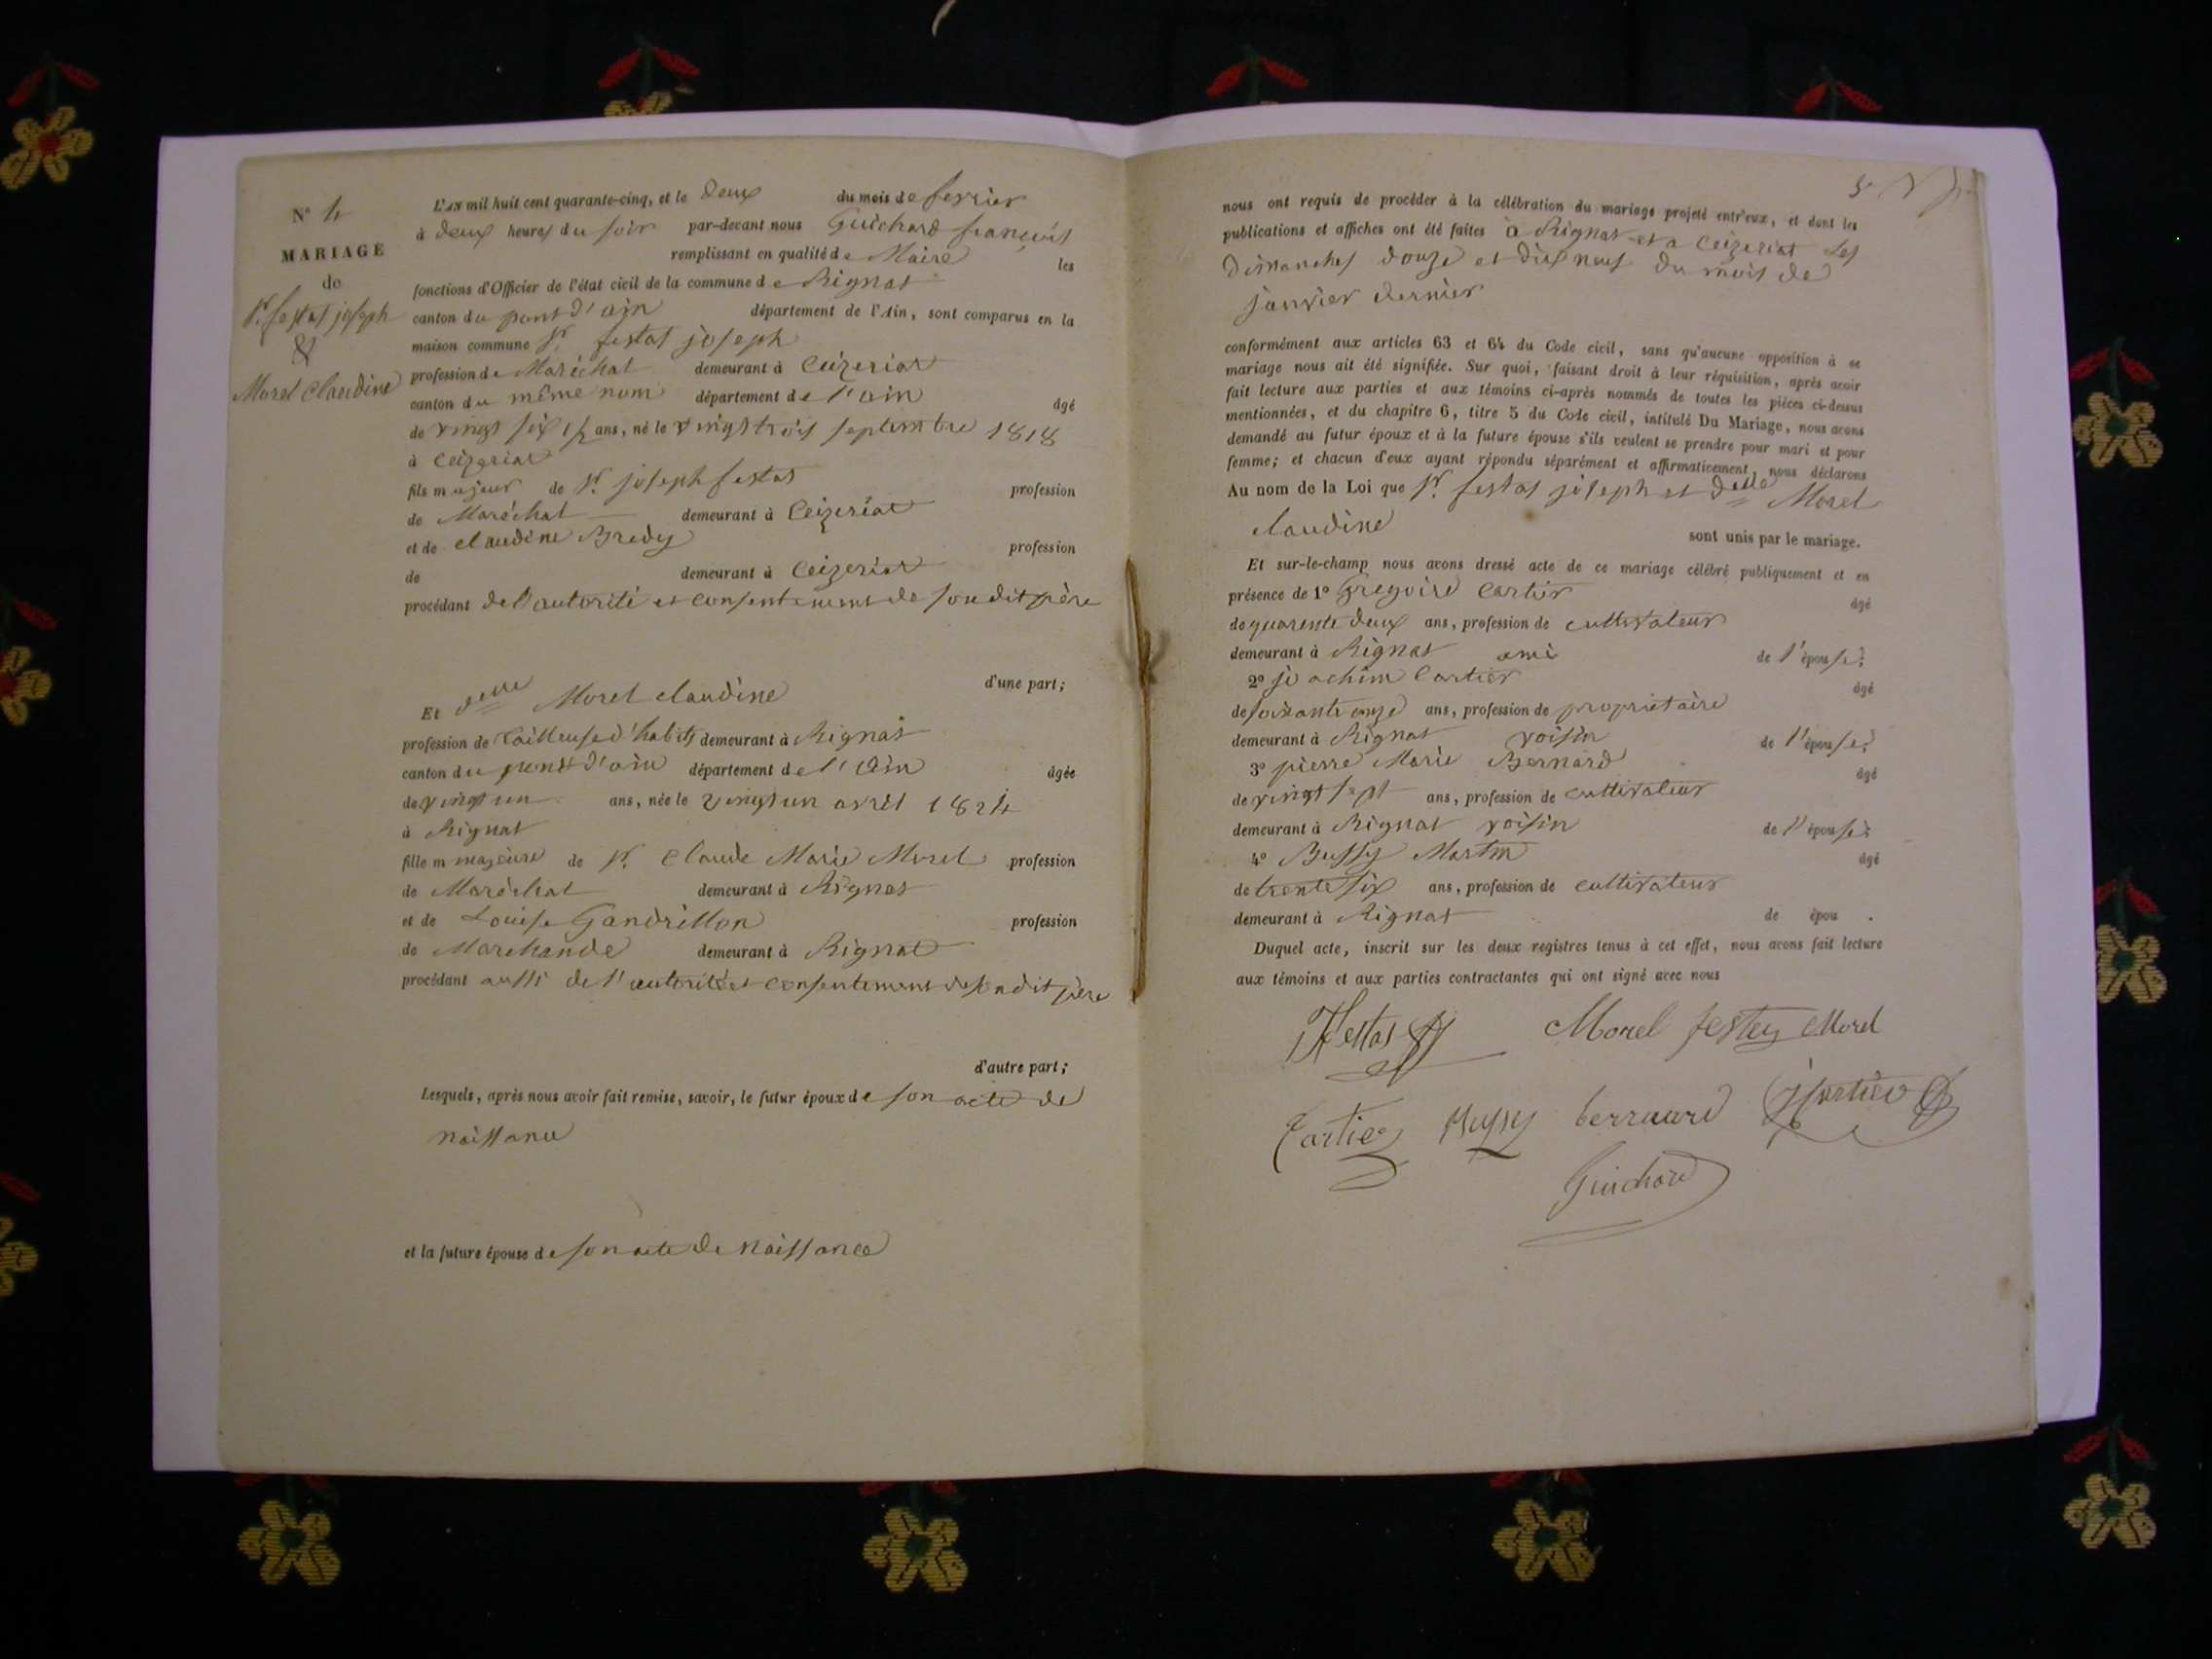 N° 4
MARIAGE
de
Sr. festas joseph
&
Morel claudine
L'AN mil huit cent quarante-cinq, et le deux du mois de fevrier
à deux heures du soir par-devant nous Guichard françois
remplissant en qualité de Maire les
fonctions d'Officier de l'état civil de la commune de Rignat
canton du pont d'ain département de l'Ain, sont comparus en la
maison commune Sr. festas joseph
profession de Maréchal demeurant à Ceizeriat
canton du même nom département de l'ain âgé
de vingt six 1/2 ans, né le vingt trois septembre 1818
à Ceizeriat
fils majeur de Sr. joseph festas profession
de Maréchal demeurant à Ceizeriat
et de claudine Bredy profession
de demeurant à Ceizeriat
procédant de l'autorité et consentement de son dit père
d'une part;
Et delle Morel claudine
profession de tailleuse d'habits demeurant à Rignat
canton du pont d'ain département de l'ain âgée
de vingt un ans, née le vingt un avril 1824
à Rignat
fille m majeure de Sr. Claude Marie Morel profession
de Maréchal demeurant à Rignat
et de Louise Gandrillon profession
de Marchande demeurant à Rignat
procédant aussi de l'autorité et consentement de son dit père
d'autre part;
Lesquels, après nous avoir fait remise, savoir, le futur époux de son acte de
naissance
et la future épouse de son acte de naissance
nous ont requis de procéder à la célébration du mariage projeté entr'eux, et dont les
publications et affiches ont été faites à Rignat et a Ceizeriat les
dimanches douze et dix neuf du mois de
janvier dernier
conformément aux articles 63 et 64 du Code civil, sans qu'aucune opposition à ce
mariage nous ait été signifiée. Sur quoi, faisant droit à leur réquisition, après avoir
fait lecture aux parties et aux témoins ci-après nommés de toutes les pièces ci-dessus
mentionnées, et du chapitre 6, titre 5 du Code civil, intitulé Du Mariage, nous avons
demandé au futur époux et à la future épouse s'ils veulent se prendre pour mari et pour
femme; et chacun d'eux ayant répondu séparément et affirmativement, nous déclarons
Au nom de la Loi que Sr. festas joseph et delle Morel
claudine
sont unis par le mariage.
Et sur-le-champ nous avons dressé acte de ce mariage célébré publiquement et en
présence de 1° Gregoire Cartier âgé
de quarente deux ans, profession de cultivateur
demeurant à Rignat ami de l'épouse;
2° joachim Cartier âgé
de soixante onze ans, profession de proprietaire
demeurant à Rignat voisin de l'épouse;
3° pierre Marie Bernard âgé
de vingt sept ans, profession de cultivateur
demeurant à Rignat voisin de l'épouse;
4° Bussy Martin âgé
de trente six ans, profession de cultivateur
demeurant à Rignat de épou .
Duquel acte, inscrit sur les deux registres tenus à cet effet, nous avons fait lecture
aux témoins et aux parties contractantes qui ont signé avec nous
festas Morel festas Morel
Cartier Bussy bernard Cartier
Guichard